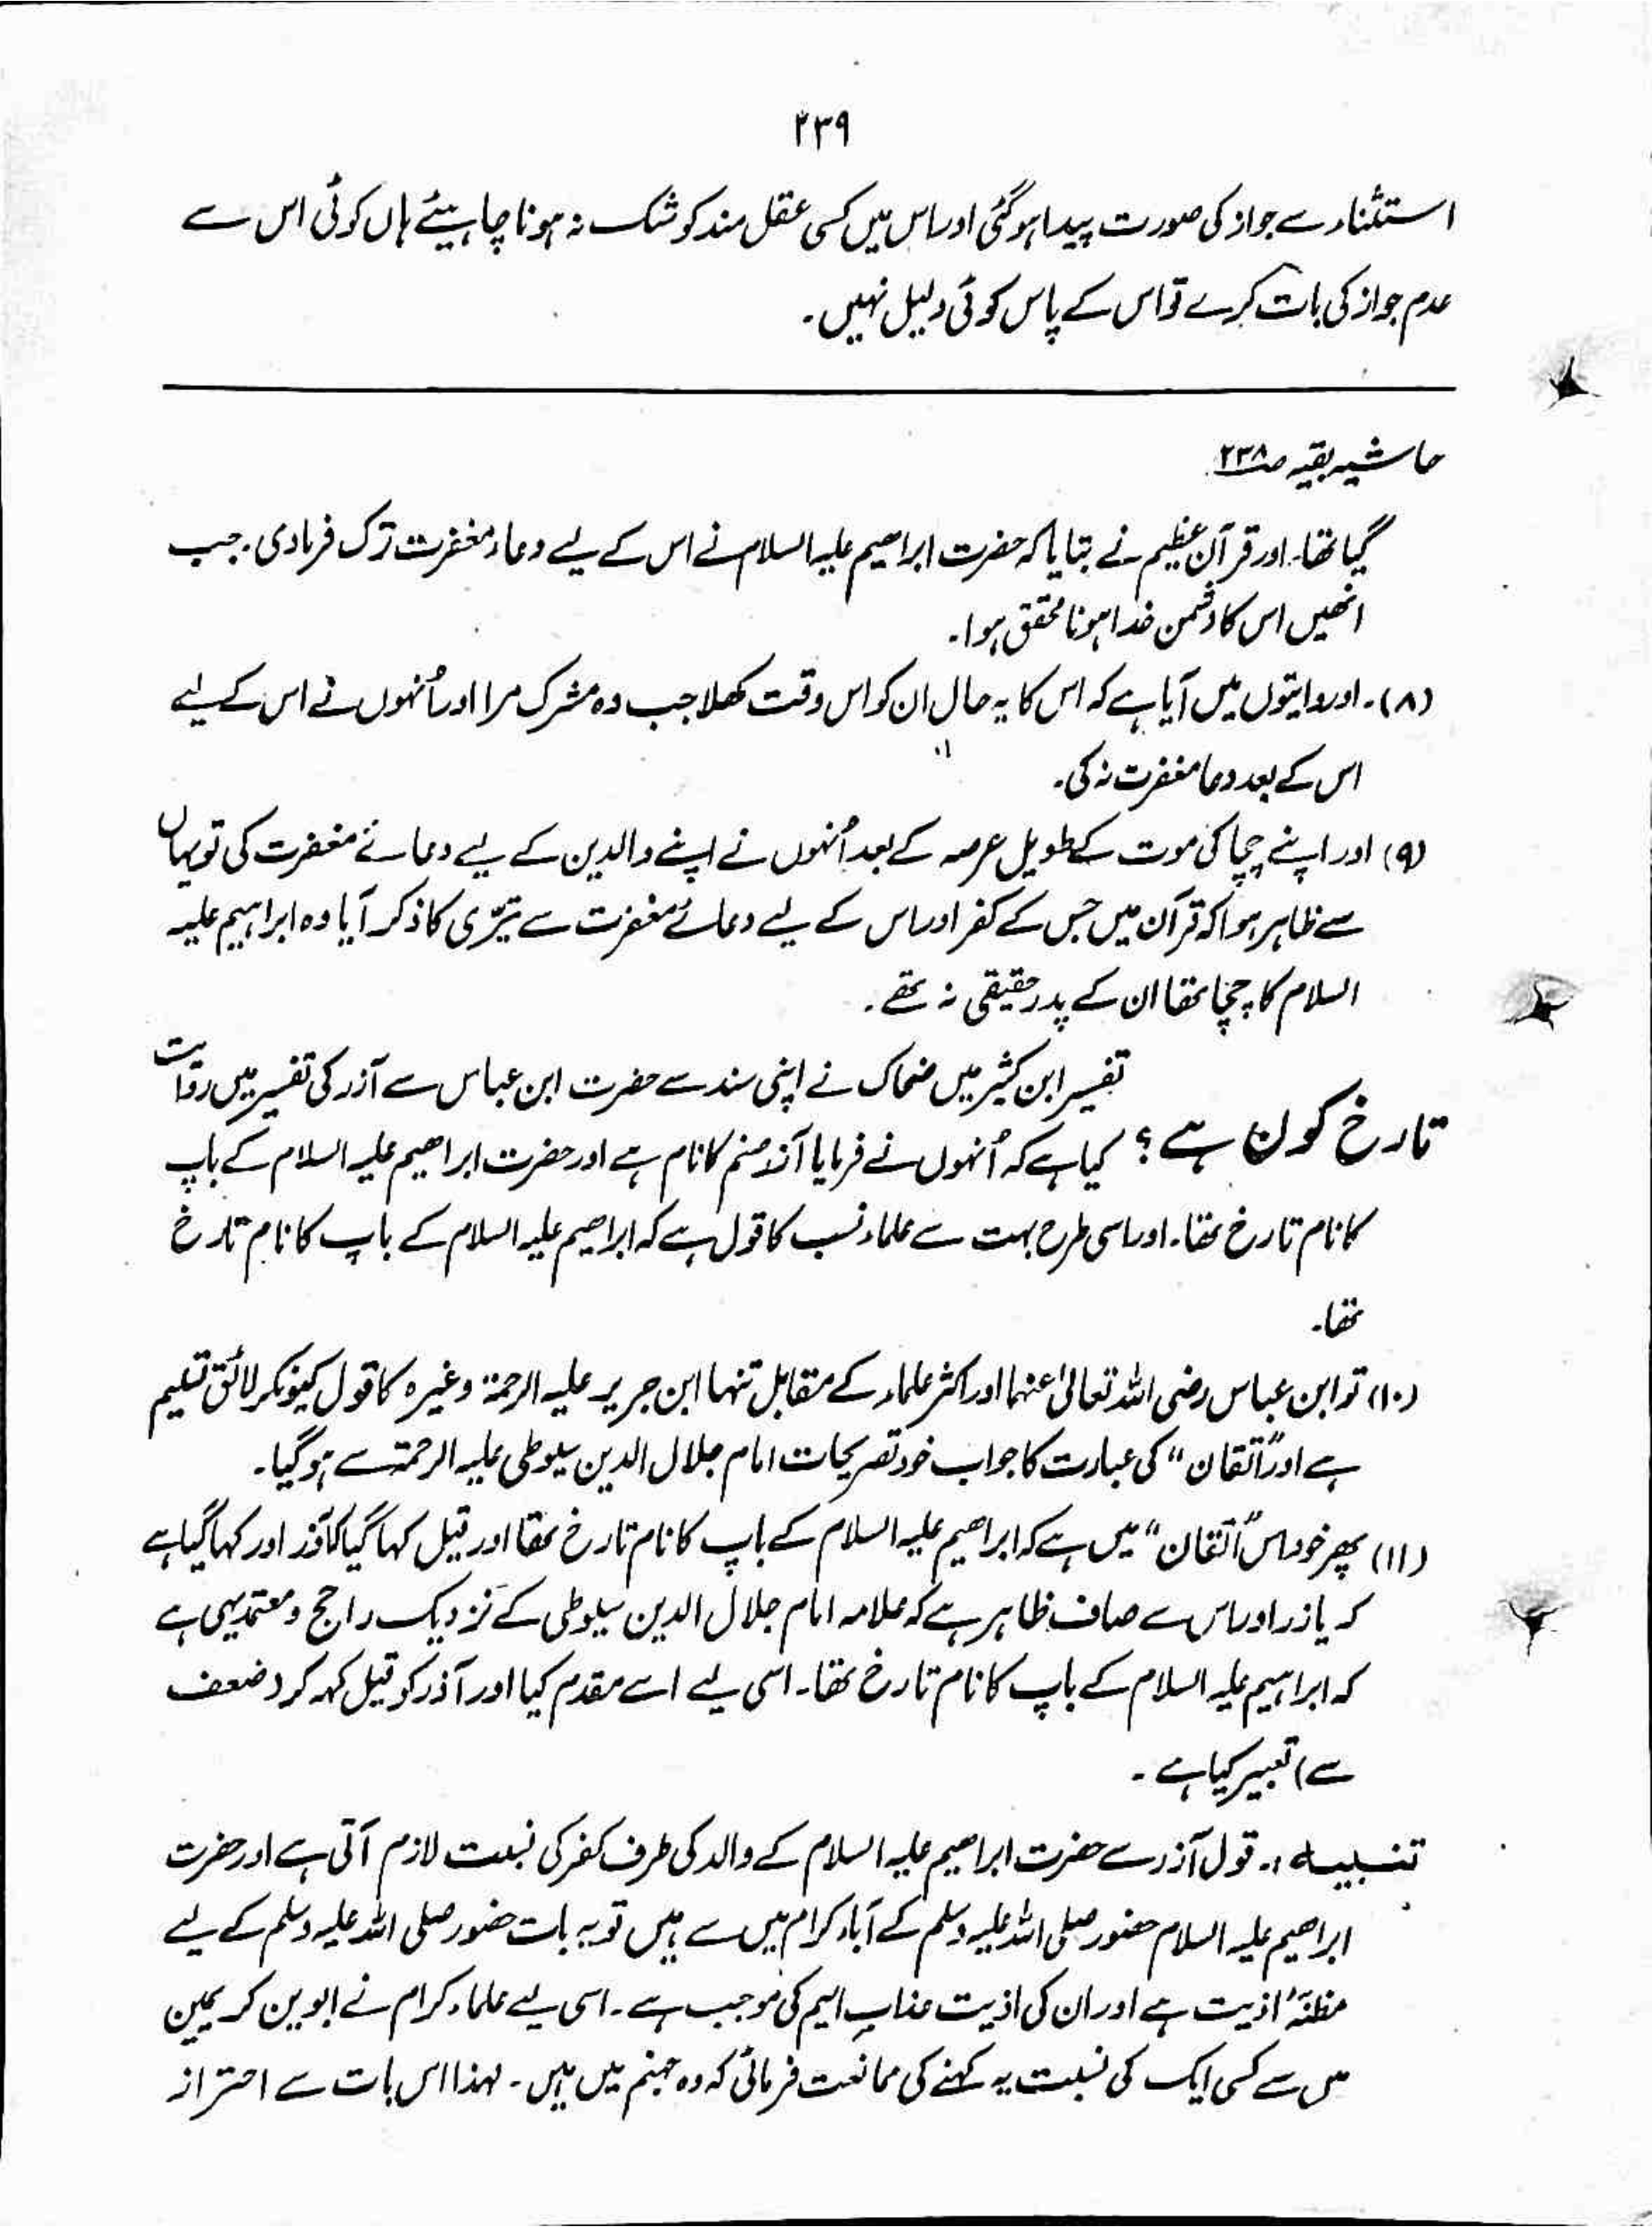 ۲۳۹
استثناء سے جواز کی صورت پیدا ہو گئی اور اس میں کسی عقل مند کو شک نہ ہونا چاہیئے ہاں کوئی اس سے
عدم جواز کی بات کرے تو اس کے پاس کوئی دلیل نہیں۔
حاشیہ بقیہ صـ۲۳۸
گیا تھا۔ اور قرآن عظیم نے بتایا کہ حضرت ابراھیم علیہ السلام نے اس کے لیے دعاء مغفرت ترک فرمادی۔ جب
انھیں اس کا دشمن خدا ہونا محقق ہوا۔
(۸)۔ اور روایتوں میں آیا ہے کہ اس کا یہ حال ان کو اس وقت کھلا جب وہ مشرک مرا اور اُنہوں نے اس کے لیے
اس کے بعد دعا مغفرت نہ کی۔
(۹) اور اپنے چچا کی موت کے طویل عرصہ کے بعد اُنہوں نے اپنے والدین کے لیے دعائے مغفرت کی تو یہاں
سے ظاہر ہوا کہ قرآن میں جس کے کفر اور اس کے لیے دعائے مغفرت سے تبرّی کا ذکر آیا وہ ابراہیم علیہ
السلام کا چچا تھا ان کے پدر حقیقی نہ تھے۔
تفسیر ابن کثیر میں ضحاک نے اپنی سند سے حضرت ابن عباس سے آزر کی تفسیر میں روایت
تارخ کون ہے؟ کیا ہے کہ اُنہوں نے فرمایا آزر صنم کا نام ہے اور حضرت ابراھیم علیہ السلام کے باپ
کا نام تارخ تھا۔ اور اسی طرح بہت سے علماء نسب کا قول ہے کہ ابراھیم علیہ السلام کے باپ کا نام تارخ
تھا۔
(۱۰) تو ابن عباس رضی اللہ تعالیٰ عنہما اور اکثر علماء کے مقابل تنہا ابن جریر علیہ الرحمۃ وغیرہ کا قول کیونکر لائق تسلیم
ہے اور "اتقان" کی عبارت کا جواب خود تصریحات امام جلال الدین سیوطی علیہ الرحمۃ سے ہو گیا۔
(۱۱) پھر خود اس "اتقان" میں ہے کہ ابراھیم علیہ السلام کے باپ کا نام تارخ تھا اور قیل کہا گیا کہ آذر اور کہا گیا ہے
کہ یازر اور اس سے صاف ظاہر ہے کہ علامہ امام جلال الدین سیوطی کے نزدیک راجح و معتمد یہی ہے
کہ ابراہیم علیہ السلام کے باپ کا نام تارخ تھا۔ اسی لیے اسے مقدم کیا اور آذر کو قیل کہہ کر (ضعف
سے) تعبیر کیا ہے۔
تنبیہ:۔ قول آزر سے حضرت ابراھیم علیہ السلام کے والد کی طرف کفر کی نسبت لازم آتی ہے اور حضرت
ابراھیم علیہ السلام حضور صلی اللہ علیہ وسلم کے آباء کرام میں سے ہیں تو یہ بات حضور صلی اللہ علیہ وسلم کے لیے
مظنۂ اذیت ہے اور ان کی اذیت عذاب الیم کی موجب ہے۔ اسی لیے علماء کرام نے ابوین کریمین
میں سے کسی ایک کی نسبت یہ کہنے کی ممانعت فرمائی کہ وہ جہنم میں ہیں۔ لہذا اس بات سے احتراز